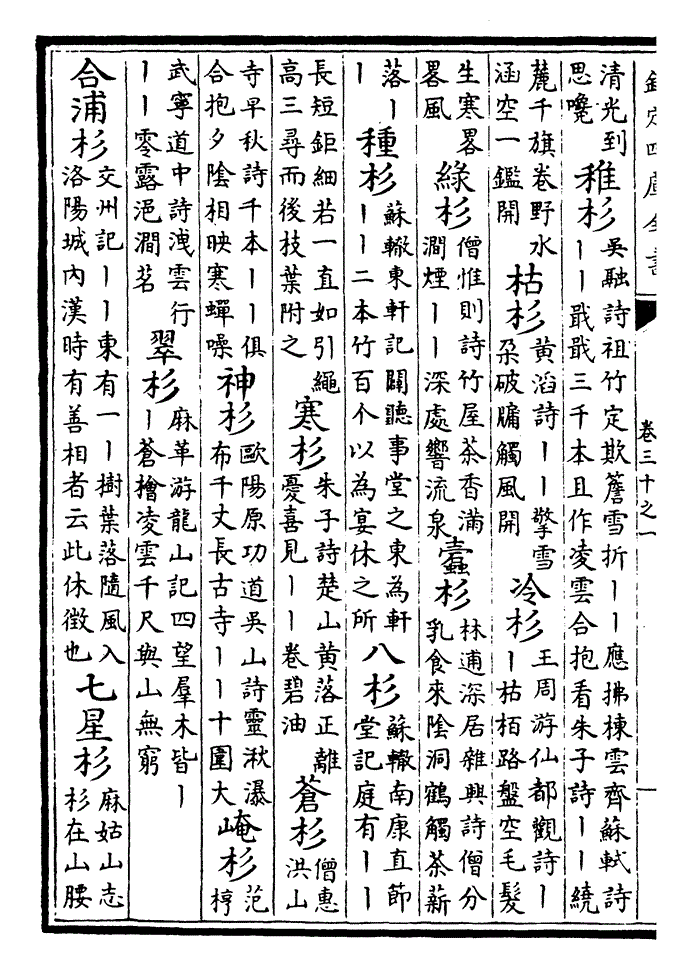 欽定四庫全書 卷三十之一
清光到
思嚵
稚杉
吳融詩祖竹定欺簷雪折丨丨應拂棟雲齊蘇軾詩
丨丨戢戢三千本且作凌雲合抱看朱子詩丨丨繞
麓千旗卷野水
涵空一鑑開
枯杉
黃滔詩丨丨擎雪
朶破牖觸風開
冷杉
王周游仙都觀詩丨
丨枯栢路盤空毛髮
生寒畧
畧風
綠杉
僧惟則詩竹屋茶香滿
澗煙丨丨深處響流泉
蠹杉
林逋深居雜興詩僧分
乳食來陰洞鶴觸茶薪
落丨
丨
種杉
蘇轍東軒記闢聽事堂之東為軒
丨丨二本竹百个以為宴休之所
八杉
蘇轍南康直節
堂記庭有丨丨
長短鉅細若一直如引繩
高三尋而後枝葉附之
寒杉
朱子詩楚山黃落正離
憂喜見丨丨卷碧油
蒼杉
僧惠
洪山
寺早秋詩千本丨丨俱
合抱夕陰相映寒蟬噪
神杉
歐陽原功道吳山詩靈湫瀑
布千丈長古寺丨丨十圍大
崦杉
范
梈
武寧道中詩洩雲行
丨丨零露浥澗茗
翠杉
麻革游龍山記四望羣木皆丨
丨蒼檜凌雲千尺與山無窮
合浦杉
交州記丨丨東有一丨樹葉落隨風入
洛陽城內漢時有善相者云此休徵也
七星杉
麻姑山志
杉在山腰